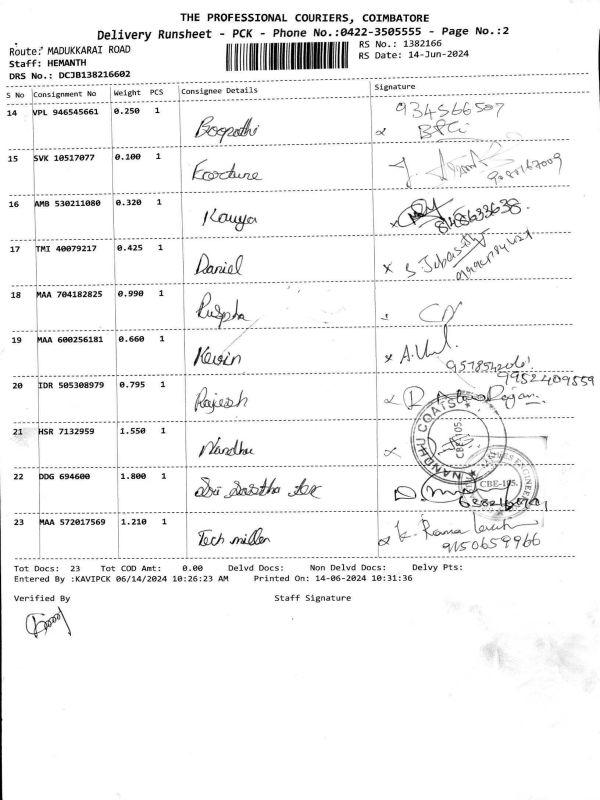 THE PROFESSIONAL COURIERS, COIMBATORE
Delivery Runsheet - PCK - Phone No.:0422-3505555 - Page No.:2
Route: MADUKKARAI ROAD
RS No.: 1382166
Staff: HEMANTH
RS Date: 14-Jun-2024
DRS No.: DCJB138216602
S No Consignment No Weight PCS Consignee Details Signature
14 VPL 946545661 0.250 1 Boopathi 934566507
15 SVK 10517077 0.100 1
16 AMB 530211080 0.320 1 Kavya 8148633638
17 TMI 40079217 0.425 1 Daniel
18 MAA 704182825 0.990 1 Puspha
19 MAA 600256181 0.660 1 Kevin
9952409559
20 IDR 505308979 0.795 1 Rajesh
21 HSR 7132959 1.550 1 Nandhu
NANDHU COATS
CBE-105.
22 DDG 694600 1.800 1 Sri
CBE-105.
23 MAA 572017569 1.210 1 Tech miller K. Rama
9150659966
Tot Docs: 23 Tot COD Amt: 0.00 Delvd Docs: Non Delvd Docs: Delvy Pts:
Entered By :KAVIPCK 06/14/2024 10:26:23 AM Printed On: 14-06-2024 10:31:36
Verified By Staff Signature